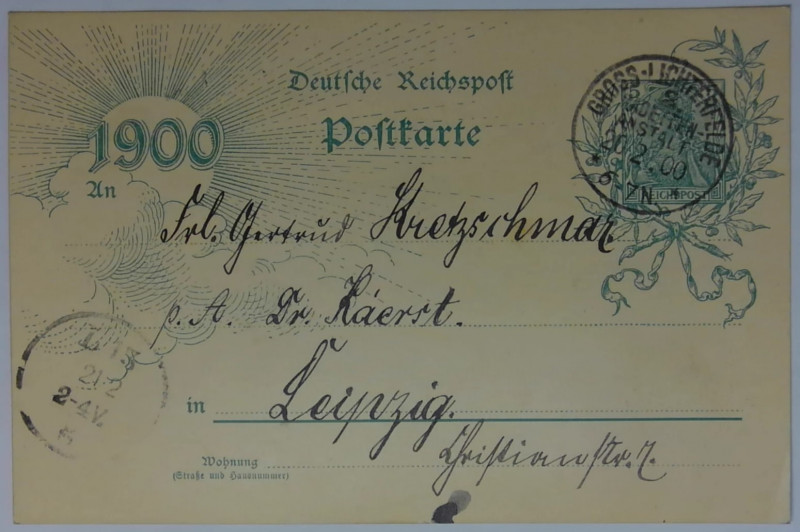 Deutsche Reichspost
1900
Postkarte
GROSS-LICHTERFELDE
ANSTALT
2.00
6-7N
REICHSPOST
An
Frl. Gertrud Kretzschmar.
p. A. Dr. Käerst.
21 2
2-4V.
in Leipzig.
Wohnung
(Straße und Hausnummer)
Christianstr. 7.